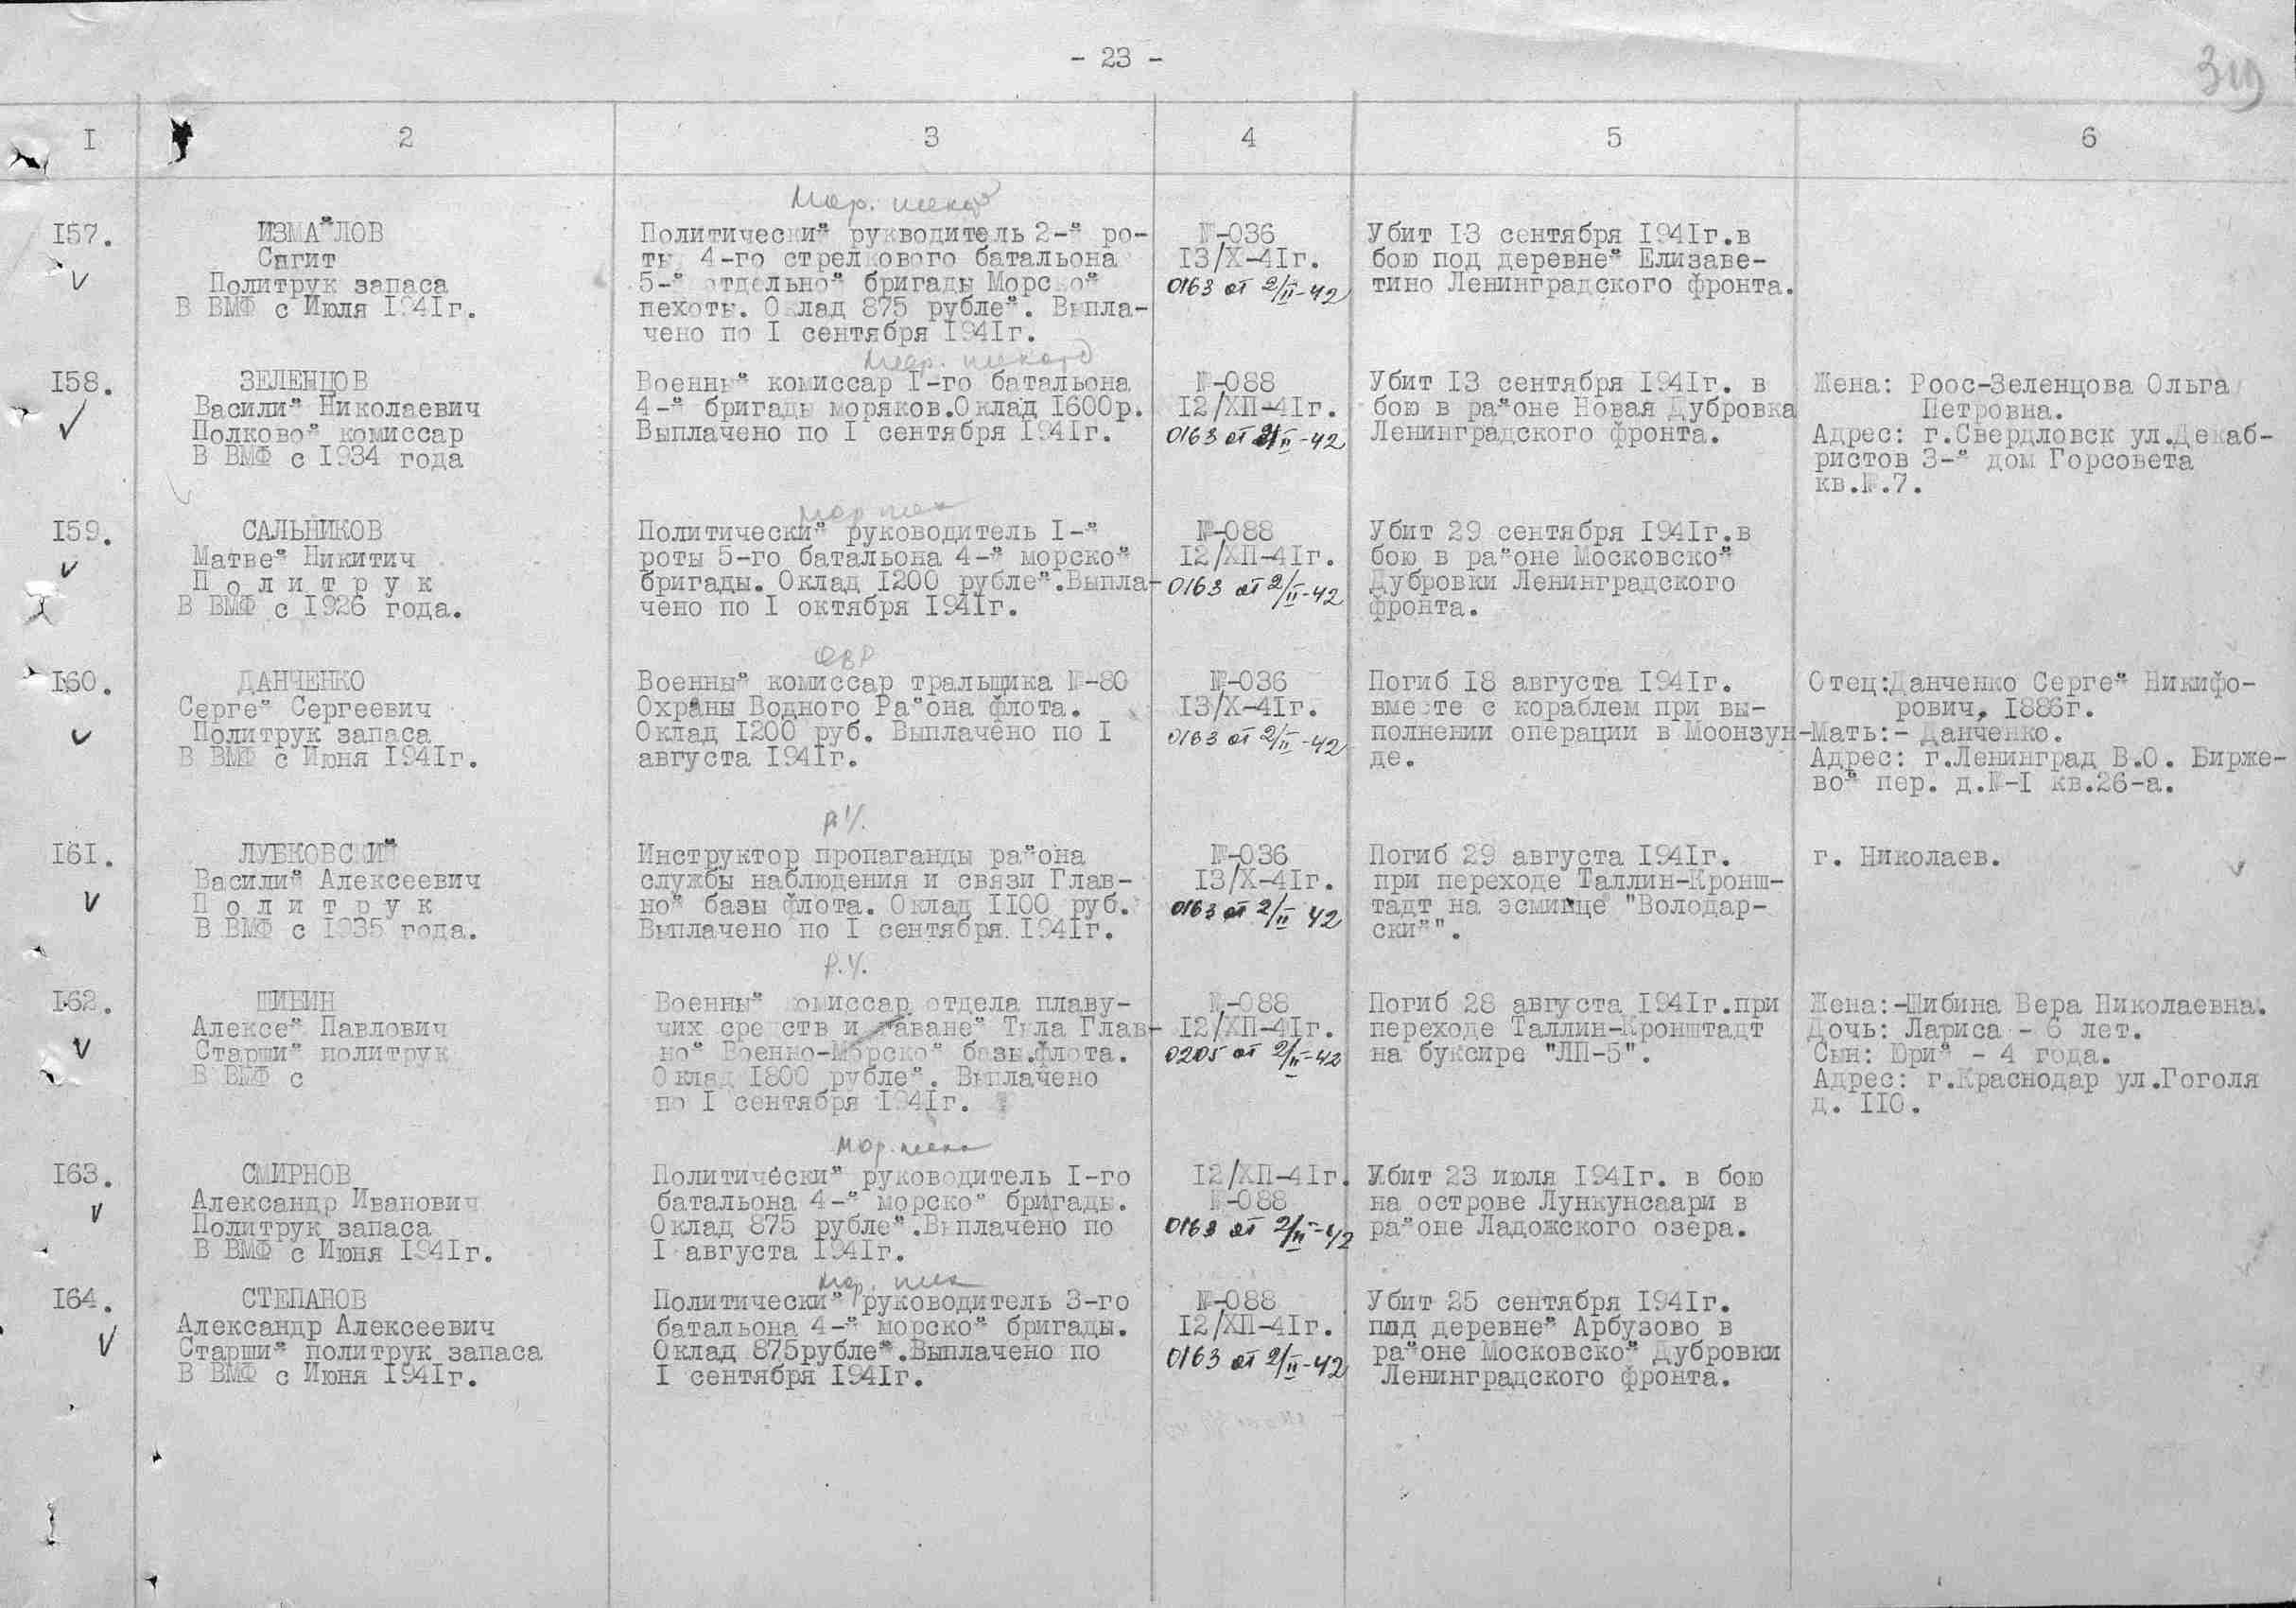 - 23 -
319
I 2 3 4 5 6
Мор. пехот
157.
ИЗМАЙЛОВ
Сагит
Политрук запаса
В ВМФ с Июля 1941г.
Политический рукводитель 2-й ро-
ты 4-го стрелкового батальона
5-й отдельной бригады Морской
пехоты. Оклад 875 рублей. Выпла-
чено по I сентября 1941г.
№-036
13/X-41г.
0163 от 2/II-42
Убит 13 сентября 1941г.в
бою под деревней Елизаве-
тино Ленинградского фронта.
Мор. пехот
158.
ЗЕЛЕНЦОВ
Василий Николаевич
Полковой комиссар
В ВМФ с 1934 года
Военный комиссар I-го батальона
4-й бригады моряков.Оклад 1600р.
Выплачено по I сентября 1941г.
№-088
12/XП-41г.
0163 от 2/II-42
Убит 13 сентября 1941г. в
бою в районе Новая Дубровка
Ленинградского фронта.
Жена: Роос-Зеленцова Ольга
Петровна.
Адрес: г.Свердловск ул.Декаб-
ристов 3-й дом Горсовета
кв.№.7.
Мор пех
159.
САЛЬНИКОВ
Матвей Никитич
П о л и т р у к
В ВМФ с 1926 года.
Политический руководитель I-й
роты 5-го батальона 4-й морской
бригады. Оклад 1200 рублей.Выпла-
чено по I октября 1941г.
№-088
12/XП-41г.
0163 от 2/II-42
Убит 29 сентября 1941г.в
бою в районе Московской
Дубровки Ленинградского
фронта.
ОВР
160.
ДАНЧЕНКО
Сергей Сергеевич
Политрук запаса
В ВМФ с Июня 1941г.
Военный комиссар тральщика №-80
Охраны Водного Района флота.
Оклад 1200 руб. Выплачено по I
августа 1941г.
№-036
13/X-41г.
0163 от 2/II-42
Погиб 18 августа 1941г.
вместе с кораблем при вы-
полнении операции в Моонзун-
де.
Отец:Данченко Сергей Никифо-
рович, 1886г.
Мать:- Данченко.
Адрес: г.Ленинград В.О. Бирже-
вой пер. д.№-I кв.26-а.
Р.У.
161.
ЛУБКОВСКИЙ
Василий Алексеевич
П о л и т р у к
В ВМФ с 1935 года.
Инструктор пропаганды района
службы наблюдения и связи Глав-
ной базы флота. Оклад 1100 руб.
Выплачено по I сентября 1941г.
№-036
13/X-41г.
0163 от 2/II 42
Погиб 29 августа 1941г.
при переходе Таллин-Кронш-
тадт на эсминце "Володар-
ский".
г. Николаев.
Р.У.
162.
ШИБИН
Алексей Павлович
Старший политрук
В ВМФ с
Военный комиссар отдела плаву-
чих средств и гаваней Тыла Глав-
ной Военно-Морской базы.флота.
Оклад 1800 рублей. Выплачено
по I сентября 1941г.
№-088
12/XП-41г.
0205 от 2/II-42
Погиб 28 августа 1941г.при
переходе Таллин-Кронштадт
на буксире "ЛП-5".
Жена:-Шибина Вера Николаевна.
Дочь: Лариса - 6 лет.
Сын: Юрий - 4 года.
Адрес: г.Краснодар ул.Гоголя
д. 110.
Мор. пехо
163.
СМИРНОВ
Александр Иванович
Политрук запаса
В ВМФ с Июня 1941г.
Политический руководитель I-го
батальона 4-й морской бригады.
Оклад 875 рублей.Выплачено по
I августа 1941г.
12/XП-41г.
№-088
0163 от 2/II-42
Убит 23 июля 1941г. в бою
на острове Лункунсаари в
районе Ладожского озера.
Мор. пех
164.
СТЕПАНОВ
Александр Алексеевич
Старший политрук запаса
В ВМФ с Июня 1941г.
Политический руководитель 3-го
батальона 4-й морской бригады.
Оклад 875рублей.Выплачено по
I сентября 1941г.
№-088
12/XП-41г.
0163 от 2/II-42
Убит 25 сентября 1941г.
под деревней Арбузово в
районе Московской Дубровки
Ленинградского фронта.